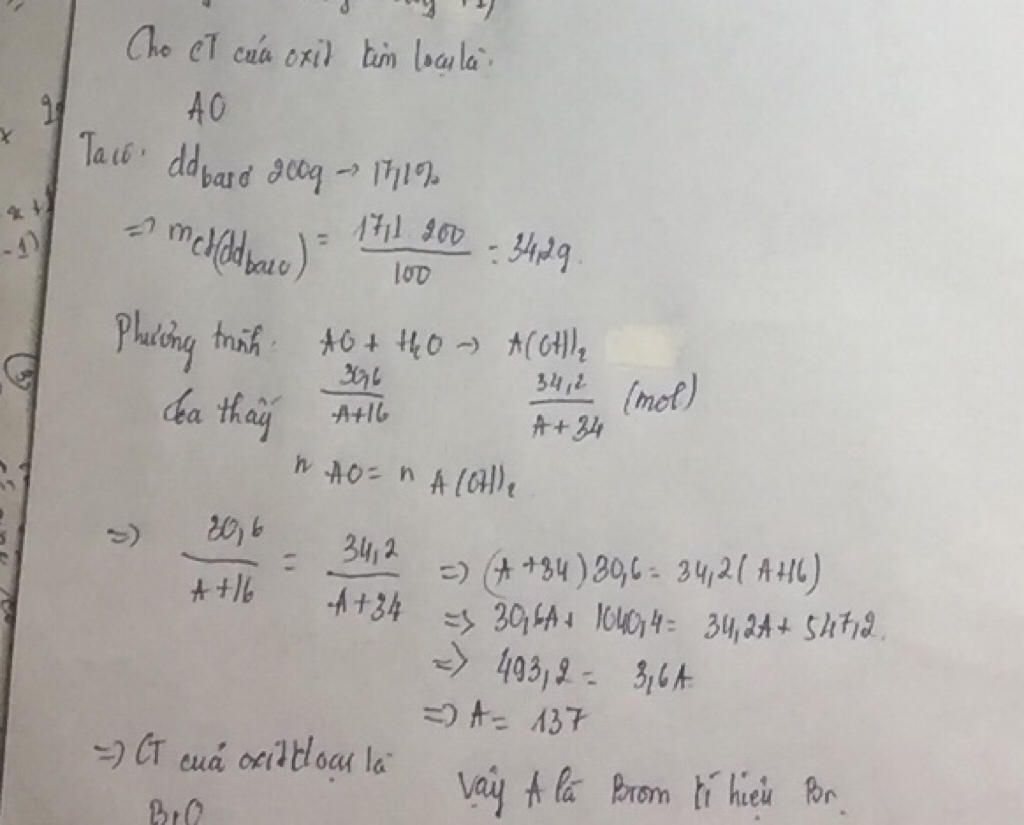 Cho CT của oxit kim loại là:
AO
Ta có: dd bazơ 200g → 17,1%
=> mct(dd bazơ) = 17,1 . 200 / 100 = 34,2g.
Phương trình: AO + H2O → A(OH)2
30,6 / A+16 34,2 / A+34 (mol)
ta thấy
n AO = n A(OH)2
=> 30,6 / A+16 = 34,2 / A+34 => (A+34)30,6 = 34,2(A+16)
=> 30,6A + 1040,4 = 34,2A + 547,2.
=> 493,2 = 3,6A
=> A = 137
=> CT của oxit kloại là
BrO
Vậy A là Brom kí hiệu Br.